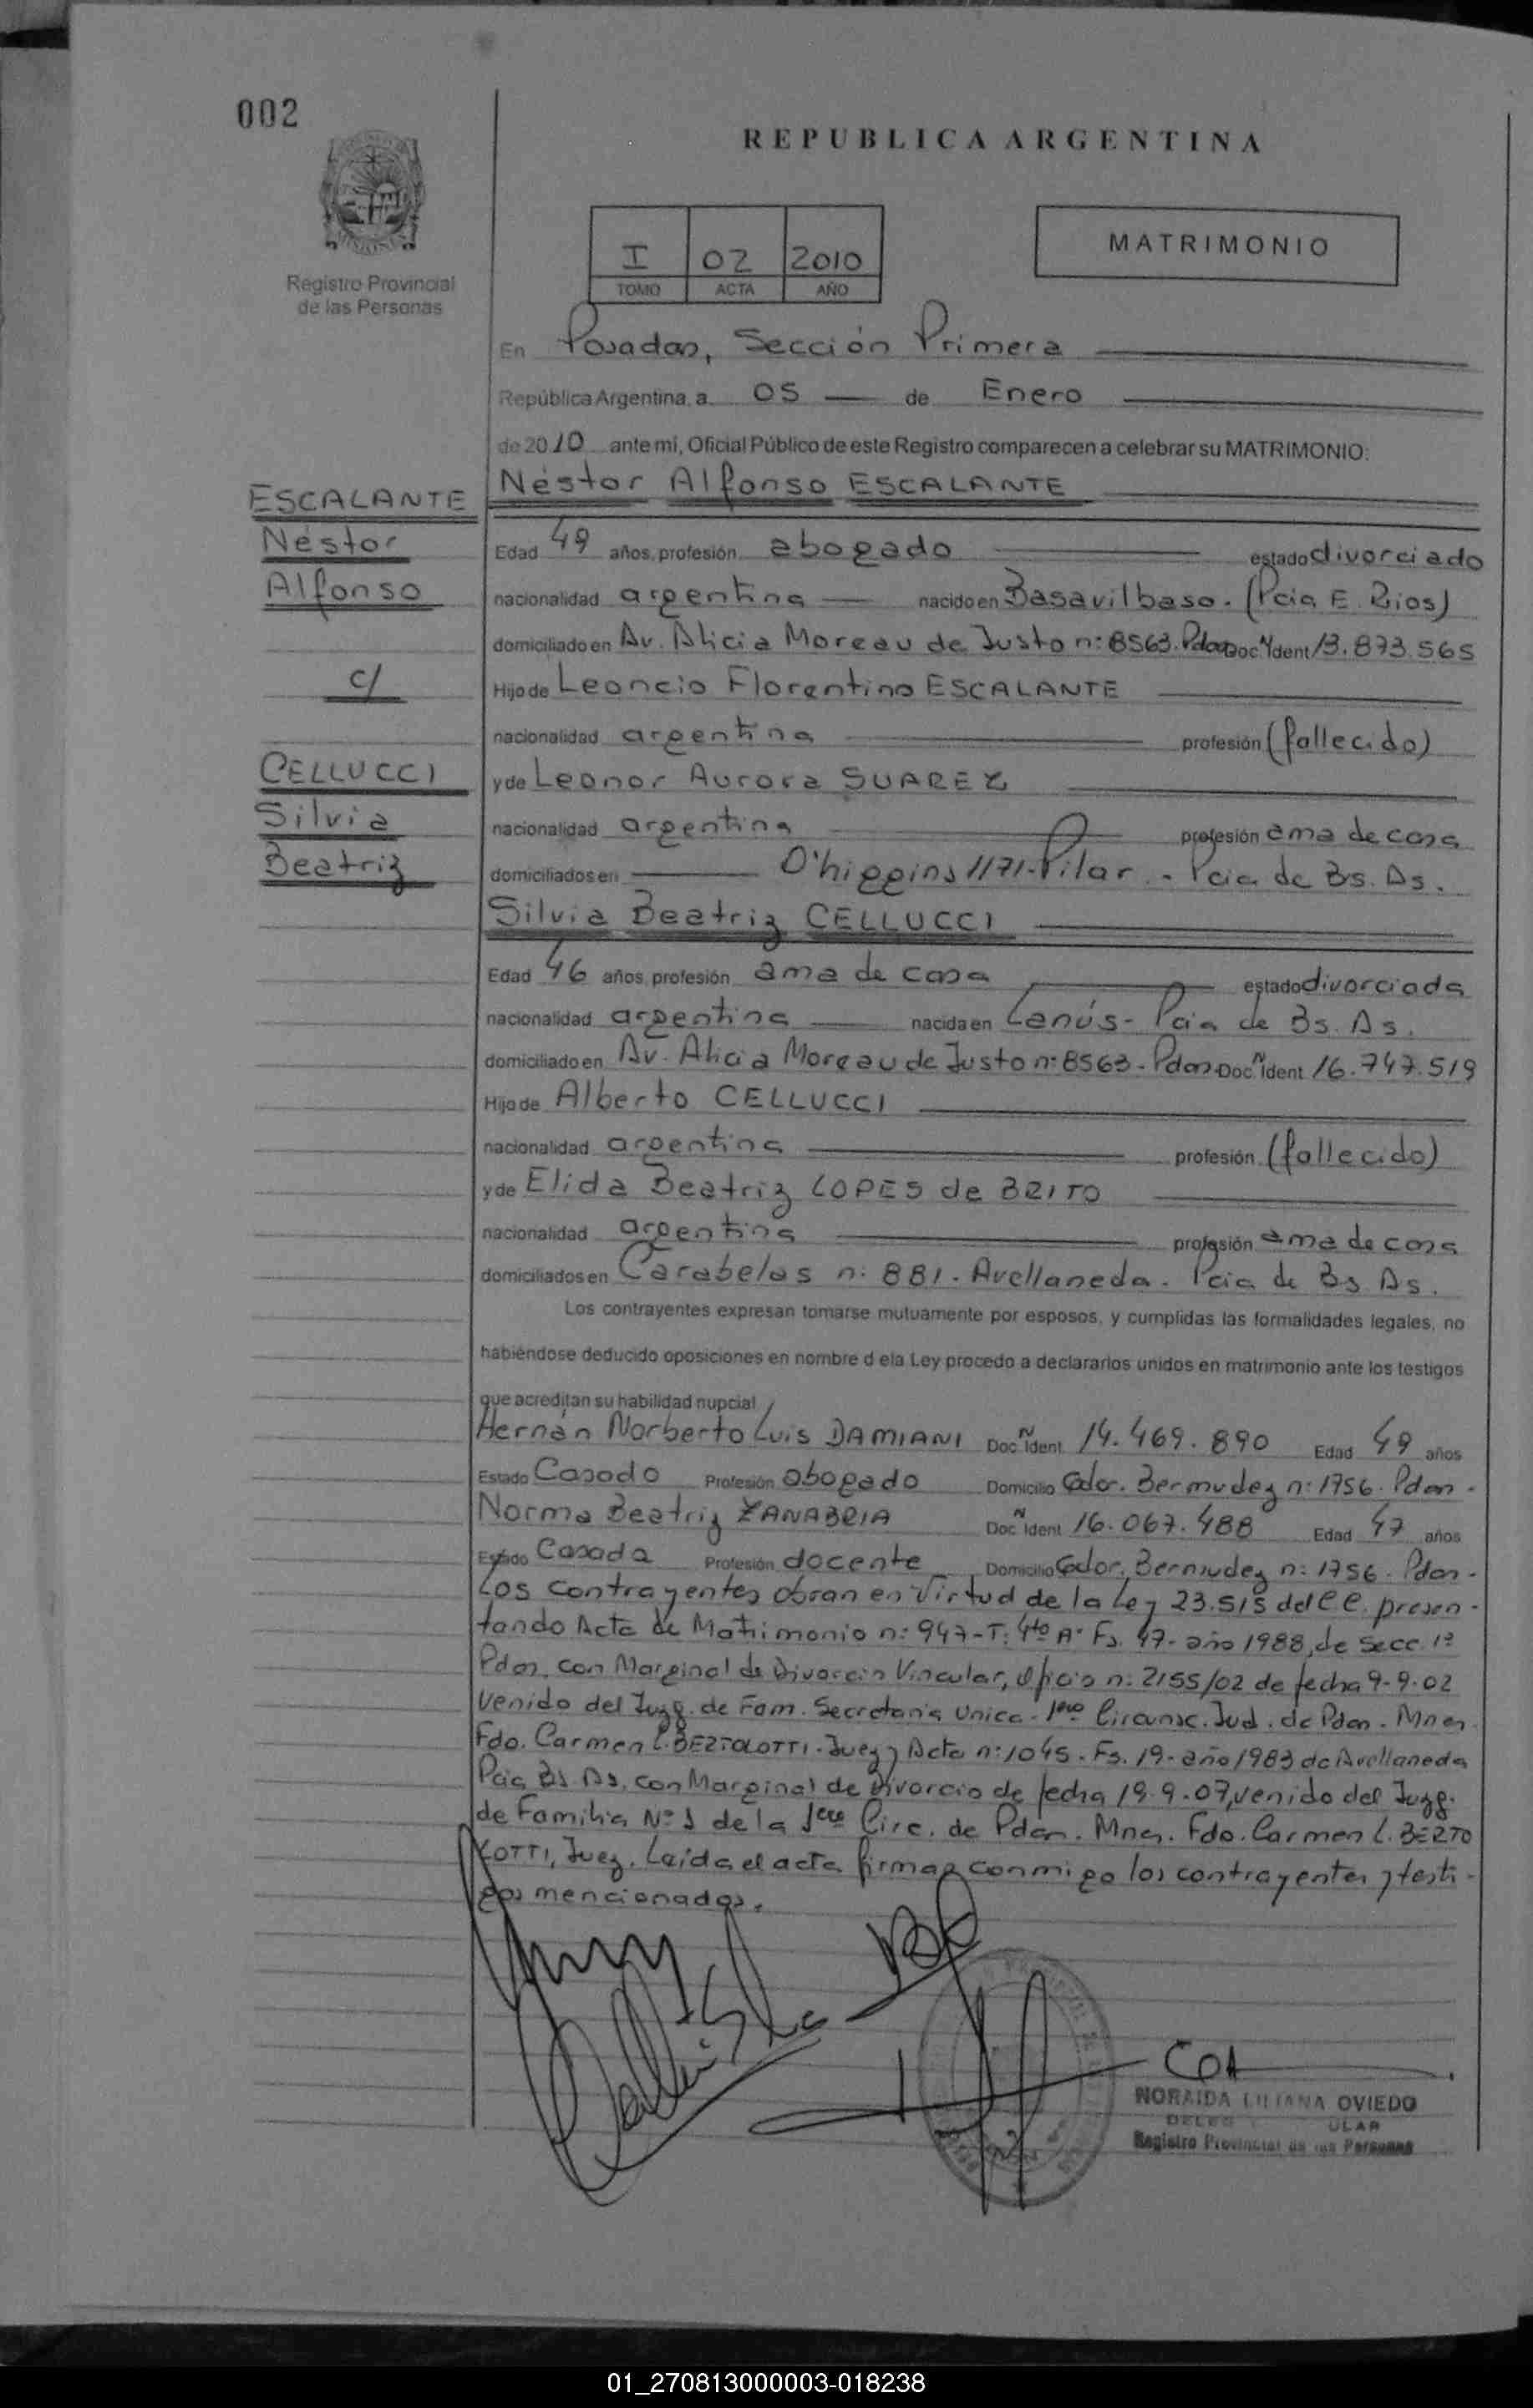 002
REPUBLICA ARGENTINA
Registro Provincial
de las Personas
I 02 2010
TOMO ACTA AÑO
MATRIMONIO
En Posadas, Sección Primera
República Argentina, a 05 de Enero
de 2010 ante mi, Oficial Público de este Registro comparecen a celebrar su MATRIMONIO:
ESCALANTE
Néstor
Alfonso
c/
CELLUCCI
Silvia
Beatriz
Néstor Alfonso ESCALANTE
Edad 49 años, profesión abogado estado divorciado
nacionalidad argentina nacido en Basavilbaso. (Pcia E. Rios)
domiciliado en Av. Alicia Moreau de Justo n: 8563. Pdas Doc. Ident 13.873.565
Hijo de Leoncio Florentino ESCALANTE
nacionalidad argentina profesión (fallecido)
y de Leonor Aurora SUAREZ
nacionalidad argentina profesión ama de casa
domiciliados en O'higgins 1171-Pilar - Pcia de Bs. As.
Silvia Beatriz CELLUCCI
Edad 46 años, profesión ama de casa estado divorciada
nacionalidad argentina nacida en Lanús - Pcia de Bs. As.
domiciliado en Av. Alicia Moreau de Justo n: 8563 - Pdas Doc. Ñ Ident 16.747.519
Hijo de Alberto CELLUCCI
nacionalidad argentina profesión (fallecido)
y de Elida Beatriz LOPES de BRITO
nacionalidad argentina profesión ama de casa
domiciliados en Carabelas n: 881. Avellaneda. Pcia de Bs. As.
Los contrayentes expresan tomarse mutuamente por esposos, y cumplidas las formalidades legales, no
habiéndose deducido oposiciones en nombre d ela Ley procedo a declararlos unidos en matrimonio ante los testigos
que acreditan su habilidad nupcial
Hernán Norberto Luis DAMIANI Doc. Ñ Ident 14.469.890 Edad 49 años
Estado Casado Profesión abogado Domicilio Gdor. Bermudez n: 1756. Pdas.
Norma Beatriz ZANABRIA Doc. Ñ Ident 16.067.488 Edad 47 años
Estado Casada Profesión docente Domicilio Gdor. Bermudez n: 1756. Pdas.
Los contrayentes obran en virtud de la ley 23.515 del C.C. presen-
tando Acta de Matrimonio n: 947-T: 4to A. Fs. 47- año 1988, de Secc. 1ª
Pdas, con Marginal de Divorcio Vincular, oficio n: 2155/02 de fecha 9-9-02
venido del Juzg. de Fam. Secretaría Unica - 1era Circunsc. Jud. de Pdas. Mnes.
Fdo. Carmen L. BERTOLOTTI. Juez y Acta n: 1045. Fs. 19- año 1983 de Avellaneda
Pcia Bs. As, con Marginal de Divorcio de fecha 19.9.07, venido del Juzg.
de Familia Nº 1 de la 1era Circ. de Pdas. Mnes. Fdo. Carmen L. BERTO
LOTTI, Juez. Leída el acta firman conmigo los contrayentes y testi-
gos mencionados.
NORAIDA LILIANA OVIEDO
Registro Provincial de las Personas
01_270813000003-018238